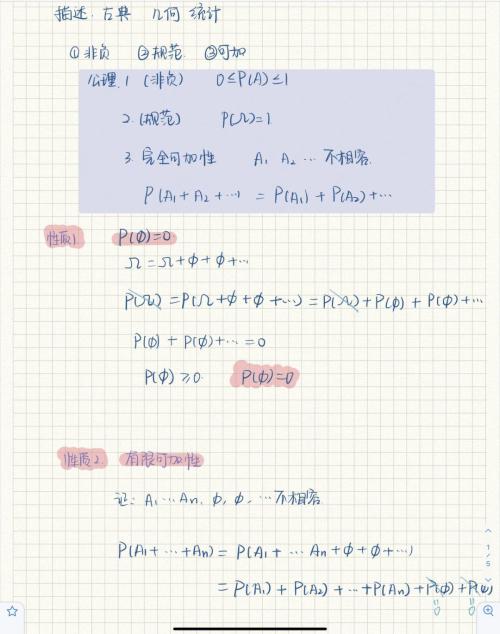 描述. 古典 几何 统计
①非负 ②规范. ③可加
公理. 1 (非负) 0≤P(A)≤1
2. (规范) P(Ω)=1.
3. 完全可加性 A₁ A₂ … 不相容.
P(A₁+A₂+…) = P(A₁)+P(A₂)+…
性质1 P(ϕ)=0
Ω=Ω+ϕ+ϕ+…
P(Ω)=P(Ω+ϕ+ϕ+…)=P(Ω)+P(ϕ)+P(ϕ)+…
P(ϕ)+P(ϕ)+…=0
P(ϕ)≥0. P(ϕ)=0
性质2. 有限可加性
证: A₁…An, ϕ, ϕ, …不相容
P(A₁+…+An)=P(A₁+…An+ϕ+ϕ+…)
=P(A₁)+P(A₂)+…+P(An)+P(ϕ)+P(ϕ)
0 0
1/5